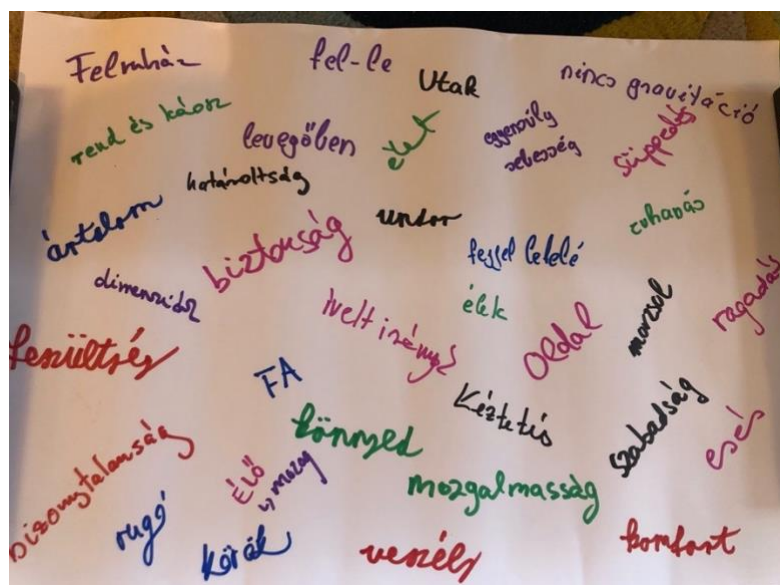 Felruház
fel-le
Utak
nincs gravitáció
rend és káosz
levegőben
élet
egyensúly
sebesség
süppedés
határoltság
ártalom
biztonság
undor
zuhanás
fejjel lefelé
dimenziók
ívelt irányok
élek
oldal
mozsol
ragadás
feszültség
FA
Késztetés
szabadság
könnyed
esés
bizonytalanság
ÉLŐ
↳ mozog
mozgalmasság
rugó
körök
veszély
komfort